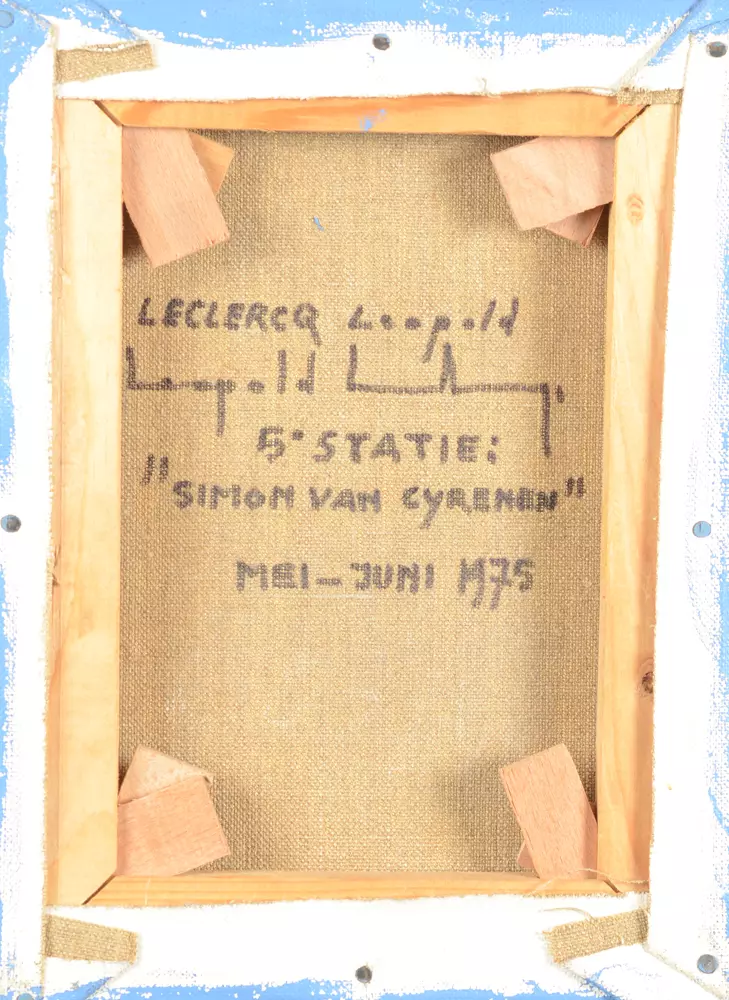 LECLERCQ Leopold
Leopold
5° STATIE:
"SIMON VAN CYRENEN"
MEI - JUNI 1975